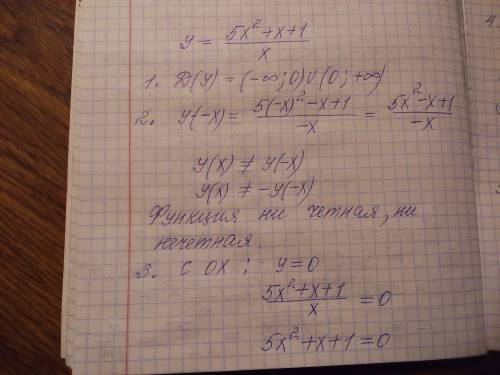 y = (5x² + x + 1) / x
1. D(y) = (-∞; 0) ∪ (0; +∞)
2. y(-x) = (5(-x)² - x + 1) / (-x) = (5x² - x + 1) / (-x)
y(x) ≠ y(-x)
y(x) ≠ -y(-x)
Функция ни четная, ни
нечетная.
3. С OX : y = 0
(5x² + x + 1) / x = 0
5x² + x + 1 = 0
4.